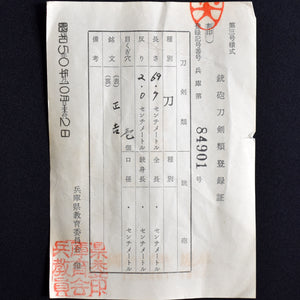 第三号様式
銃砲刀剣類登録証
登録記号番号 兵庫県 第 84901 号
刀剣類
銃砲
種別 刀
種別
長さ 69.7 センチメートル
全長 ・ センチメートル
反り 2.0 センチメートル
銃身長 ・ センチメートル
目くぎ穴 個
口径 ・ センチメートル
銘文 (表) 正吉
(裏)
備考
昭和50年10月 2日
兵庫県教育委員会